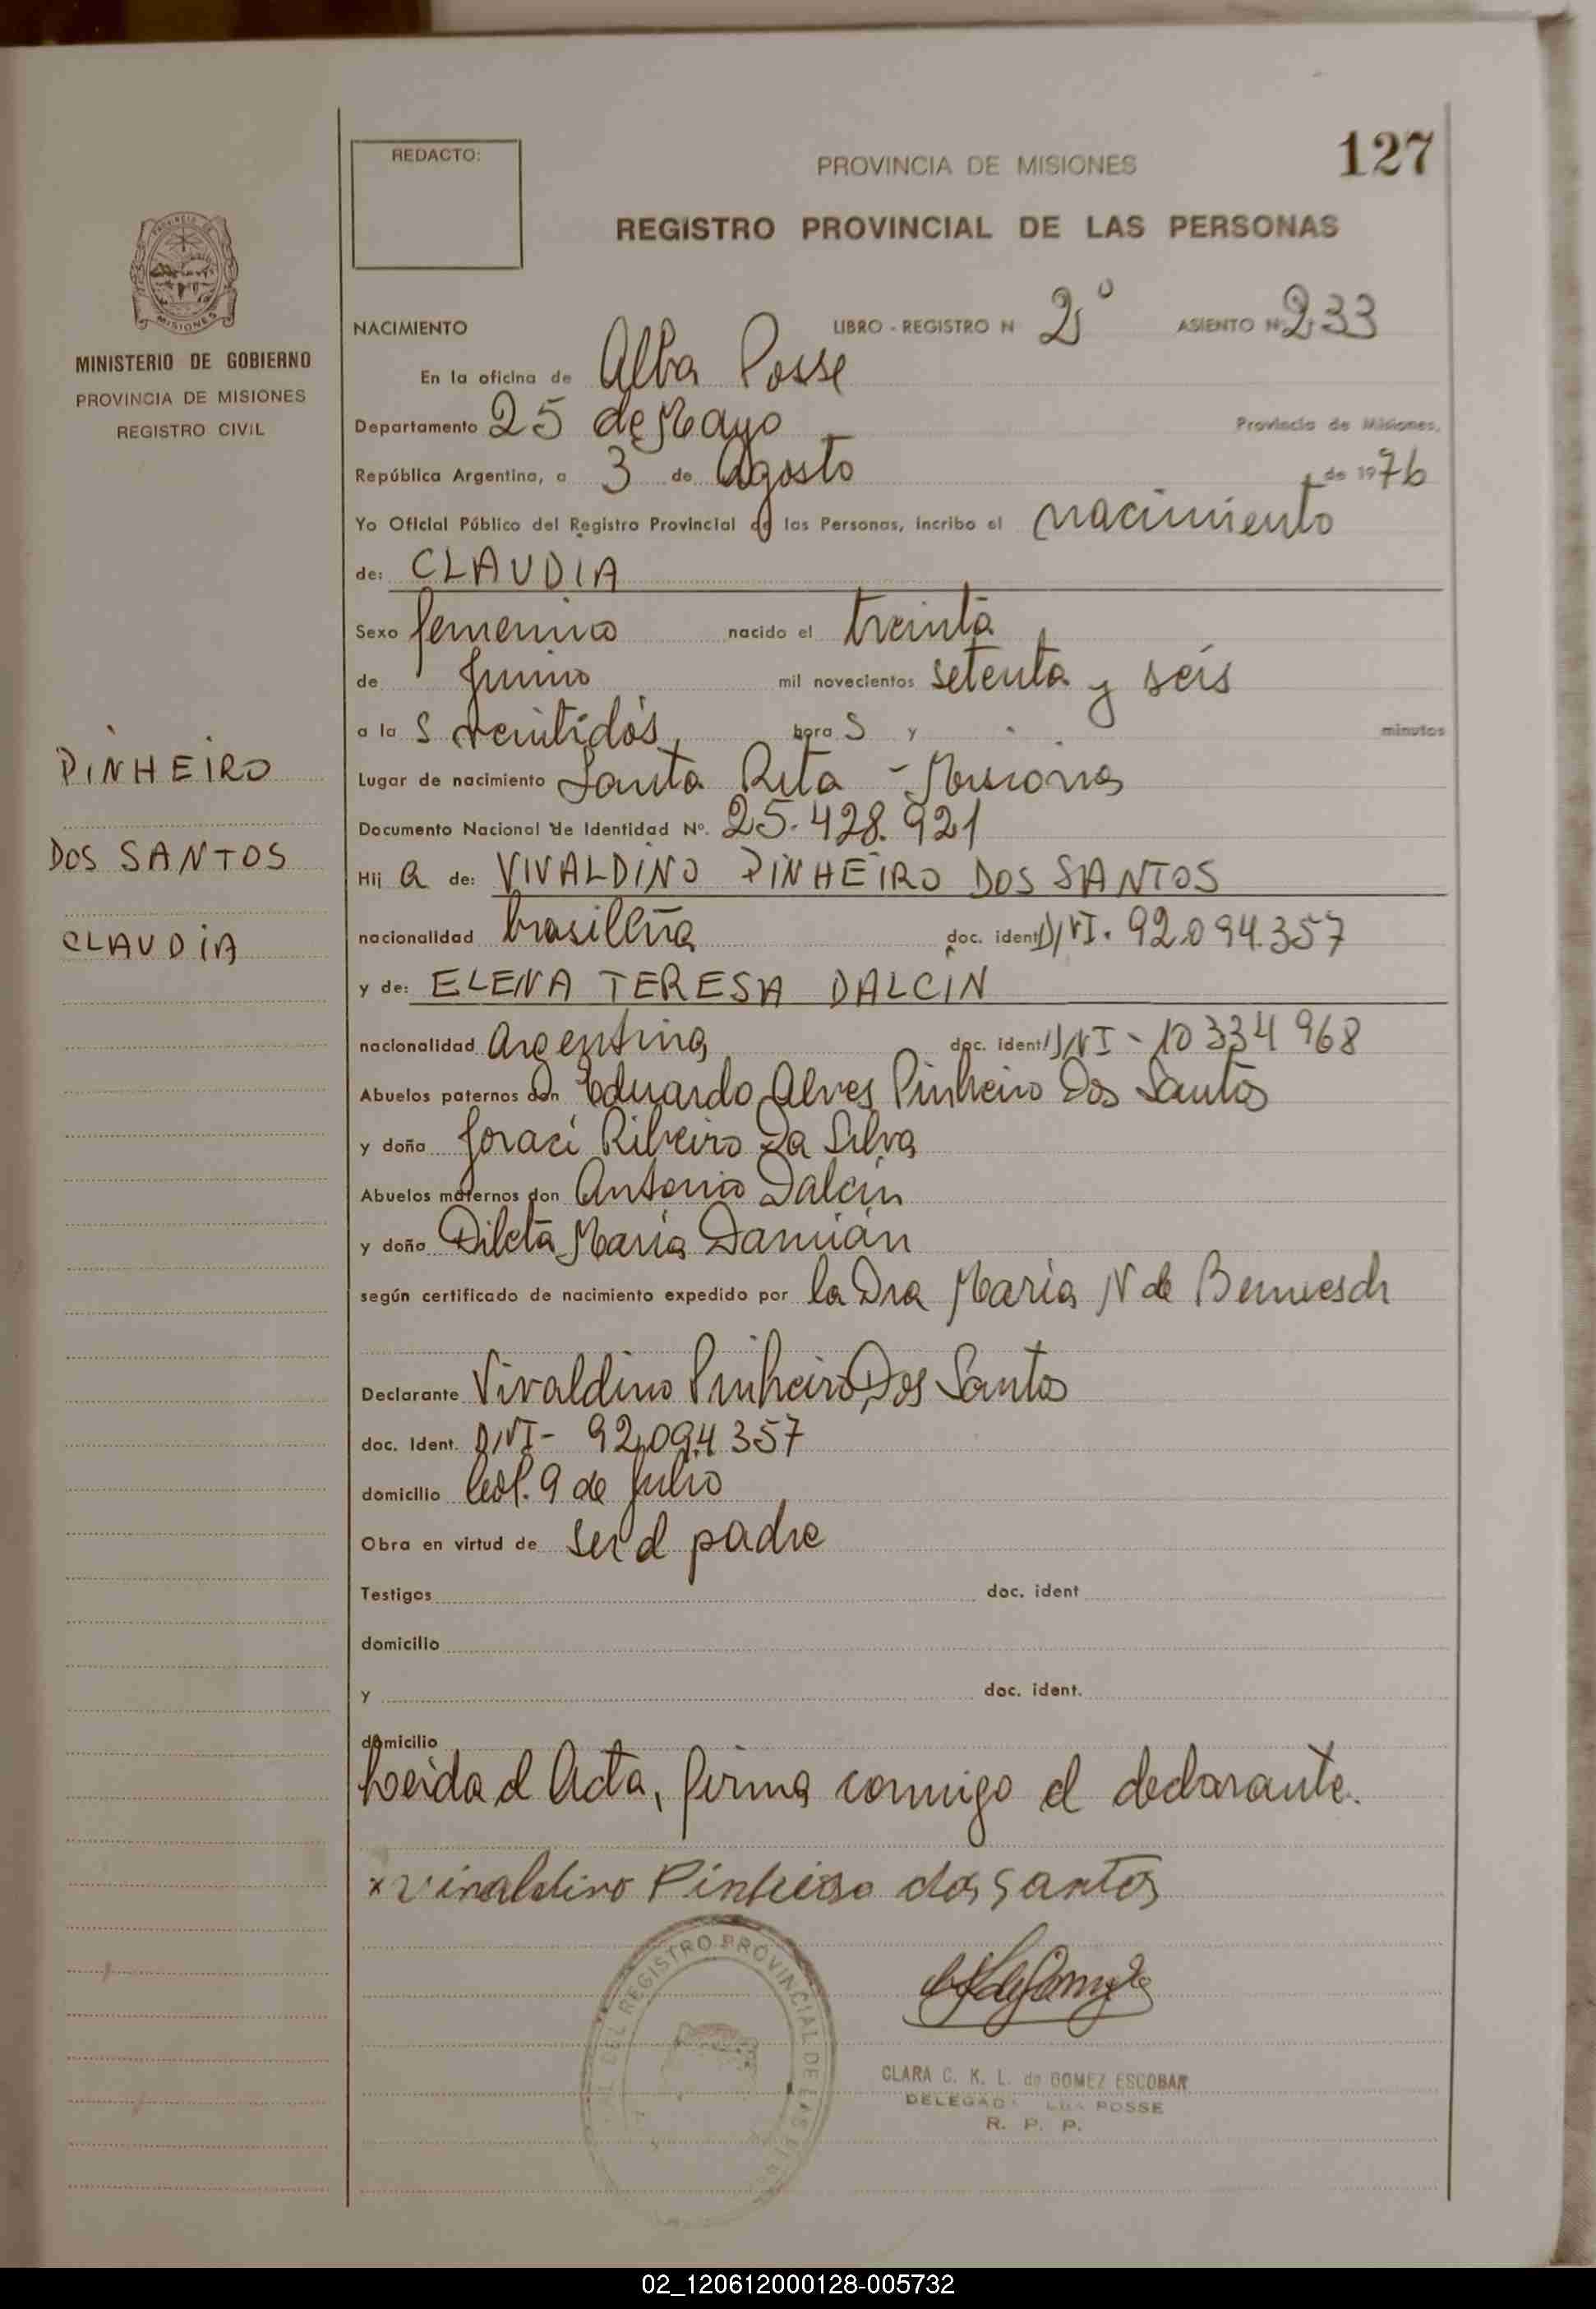 REDACTO:
PROVINCIA DE MISIONES
127
REGISTRO PROVINCIAL DE LAS PERSONAS
MISIONES
MINISTERIO DE GOBIERNO
PROVINCIA DE MISIONES
REGISTRO CIVIL
NACIMIENTO LIBRO - REGISTRO N 2º ASIENTO Nº 233
En la oficina de Alba Posse
Departamento 25 de Mayo Provincia de Misiones,
República Argentina, a 3 de Agosto de 1976
Yo Oficial Público del Registro Provincial de las Personas, incribo el nacimiento
de: CLAUDIA
Sexo femenino nacido el treinta
de Junio mil novecientos setenta y seis
a la s veintidós, hora s y - . - minutos
Lugar de nacimiento Santa Rita - Misiones
Documento Nacional de Identidad Nº. 25.428.921
Hij a de: VIVALDINO PINHEIRO DOS SANTOS
nacionalidad brasileña doc. ident DNI. 92.094.357
y de: ELENA TERESA DALCIN
nacionalidad Argentina doc. ident DNI - 10 334 968
Abuelos paternos don Eduardo Alves Pinheiro Dos Santos
y doña Joraci Ribeiro Da Silva
Abuelos maternos don Antonio Dalcin
y doña Dileta María Damián
según certificado de nacimiento expedido por la Dra María N de
Declarante Vivaldino Pinheiro Dos Santos
doc. Ident. DNI - 92.094.357
domicilio Col. 9 de Julio
Obra en virtud de ser el padre
Testigos doc. ident
domicilio
y doc. ident.
domicilio
Leida el Acta, firma conmigo el declarante.
x vivaldino Pinheiro dos Santos
PINHEIRO
DOS SANTOS
CLAUDIA
DEL REGISTRO PROVINCIAL DE LAS
CLARA C. K. L. de GOMEZ ESCOBAR
DELEGAD POSSE
R. P. P.
02_120612000128-005732